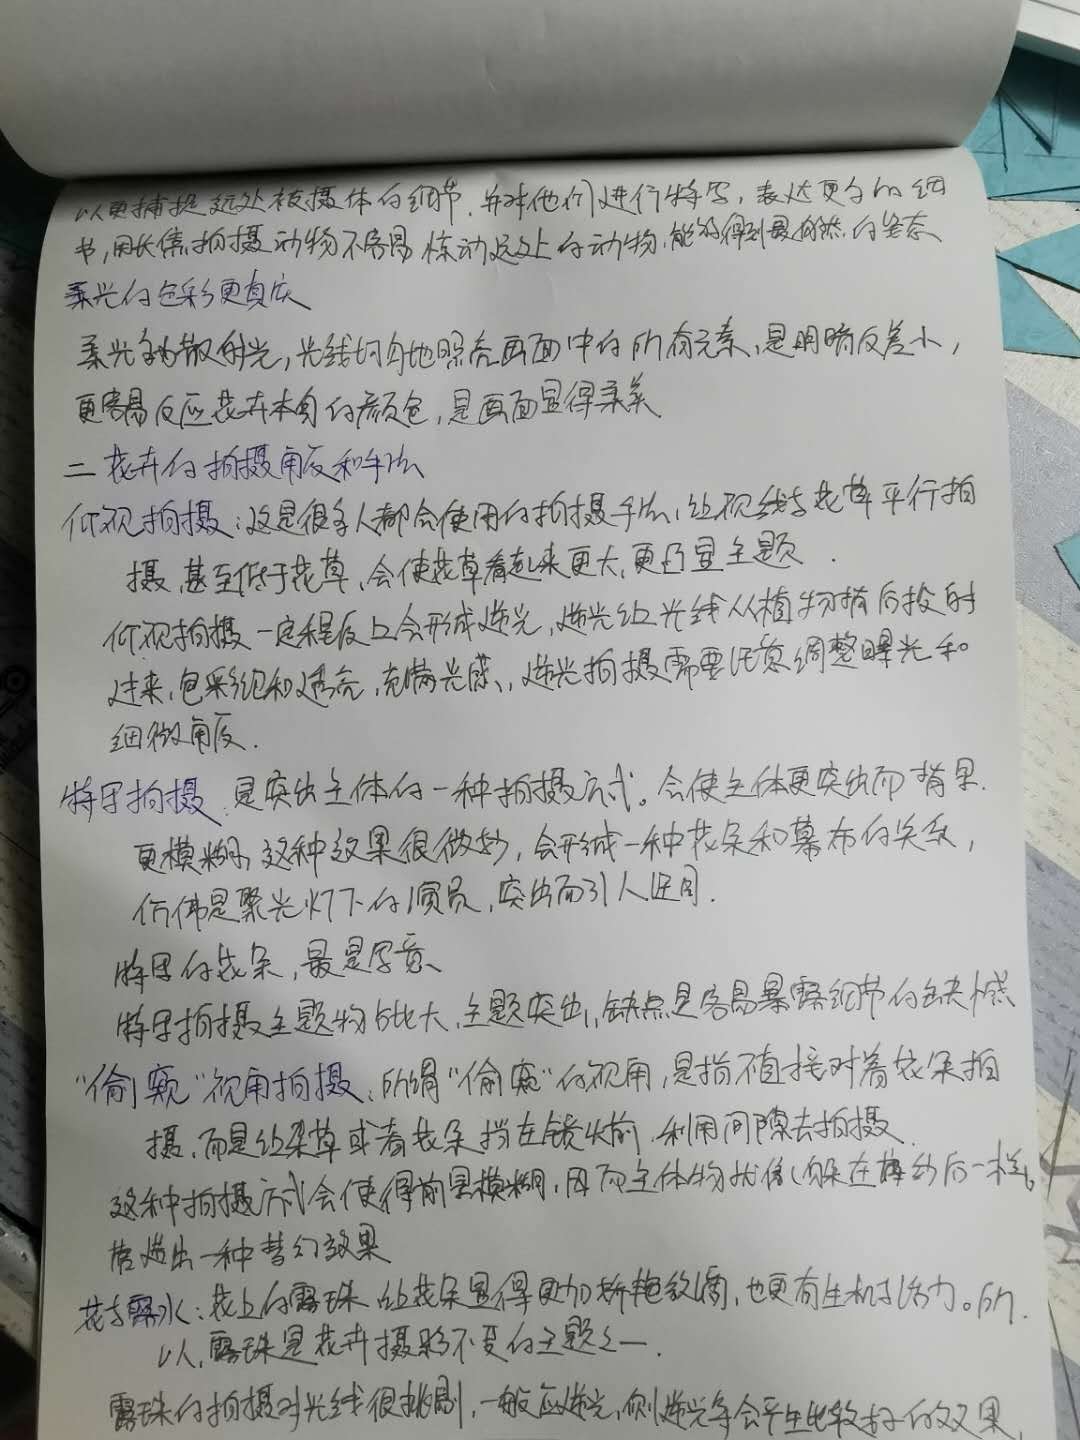 以更捕捉远处被摄体的细节.并对他们进行特写,表达更多的细
节,用长焦拍摄动物不容易惊动远处的动物,能够得到最自然的姿态
柔光的色彩更真实
柔光为散射光,光线均匀地照亮画面中的所有元素,是明暗反差小,
更容易反应花卉本身的颜色,是画面显得柔美
二 花卉的拍摄角度和手法
仰视拍摄:这是很多人都会使用的拍摄手法,让视线与花草平行拍
摄,甚至低于花草,会使花草看起来更大,更凸显主题.
仰视拍摄一定程度上会形成逆光,逆光让光线从植物背后投射
过来,色彩饱和透亮,充满光感,逆光拍摄需要注意调整曝光和
细微角度.
特写拍摄.是突出主体的一种拍摄方式。会使主体更突出而背景.
更模糊,这种效果很微妙,会形成一种花朵和幕布的关系,
仿佛是聚光灯下的演员,突出而引人注目.
特写的花朵,最是写意、
特写拍摄主题物占比大,主题突出,缺点是容易暴露细节的缺憾
“偷窥”视角拍摄:所谓“偷窥”的视角,是指不直接对着花朵拍
摄,而是让杂草或者花朵挡在镜头前,利用间隙去拍摄
这种拍摄方式会使得前景模糊,因而主体物就像(躲在薄纱后一样。
营造出一种梦幻效果
花与露水:花上的露珠让花朵显得更加娇艳欲滴,也更有生机与活力。所.
以,露珠是花卉摄影不变的主题之一.
露珠的拍摄对光线很挑剔,一般应逆光,侧逆光等会产生比较好的效果,